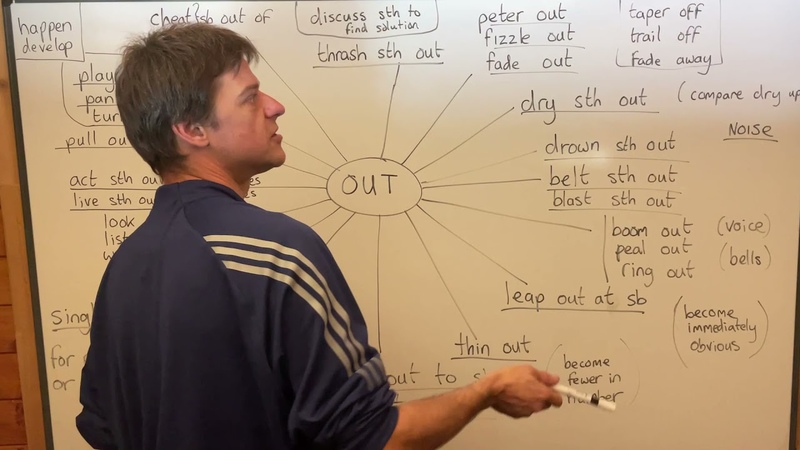 happen
develop
cheat sb out of
discuss sth to
find solution
thrash sth out
peter out
fizzle out
fade out
taper off
trail off
fade away
dry sth out
(compare dry up
NOISE
drown sth out
belt sth out
blast sth out
OUT
boom out (voice)
peal out (bells)
ring out
leap out at sb
(become
immediately
obvious)
thin out
(become
fewer in
number)
out to
play
pan
pull ou
act sth ou
live sth ou
look
list
sing
for
or